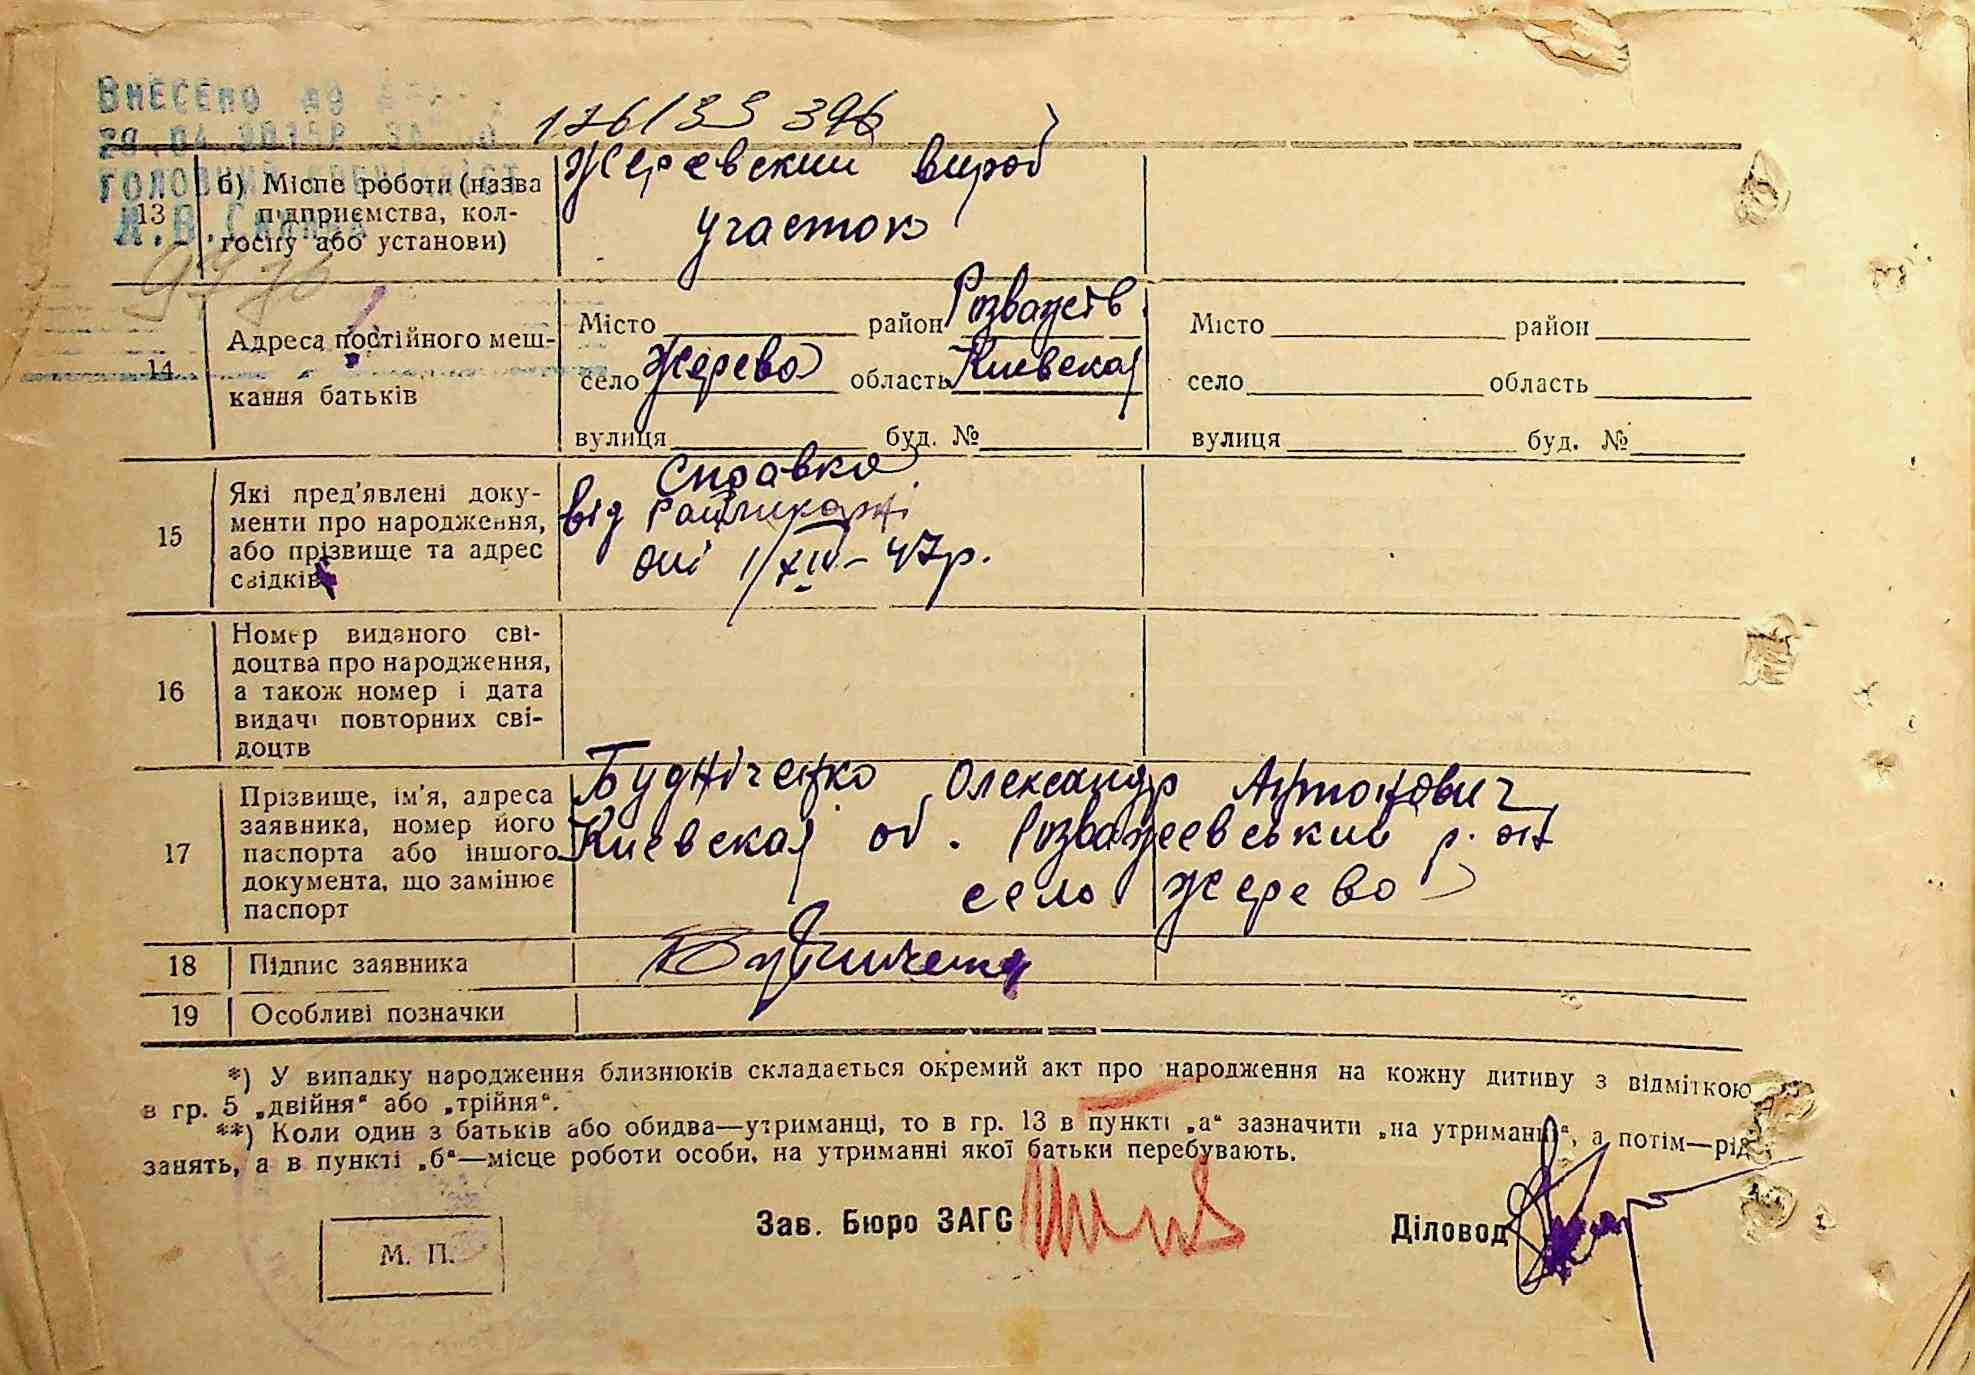 Внесено до
ГОЛОВНИЙ СПЕЦІАЛІСТ
13 б) Місце роботи (назва підприємства, колгоспу або установи)
Жеревский вироб
участок
14 Адреса постійного мешкання батьків
Місто район Розважств.
село Жерево область Киевская
вулиця буд. №
Місто район
село область
вулиця буд. №
15 Які пред'явлені документи про народження, або прізвище та адрес свідків
Справка
від
дні 1/XIV-47р.
16 Номер виданого свідоцтва про народження, а також номер і дата видачі повторних свідоцтв
17 Прізвище, ім'я, адреса заявника, номер його паспорта або іншого документа, що замінює паспорт
Будніченко Олександр Антонович
Киевская об. Розважевський р.
село Жерево
18 Підпис заявника
19 Особливі позначки
*) У випадку народження близнюків складається окремий акт про народження на кожну дитину з відміткою
в гр. 5 „двійня" або „трійня".
**) Коли один з батьків або обидва—утриманці, то в гр. 13 в пункті „а" зазначити „на утриманні", а потім—рід
занять, а в пункті „б"—місце роботи особи, на утриманні якої батьки перебувають.
Зав. Бюро ЗАГС
Діловод
М. П.